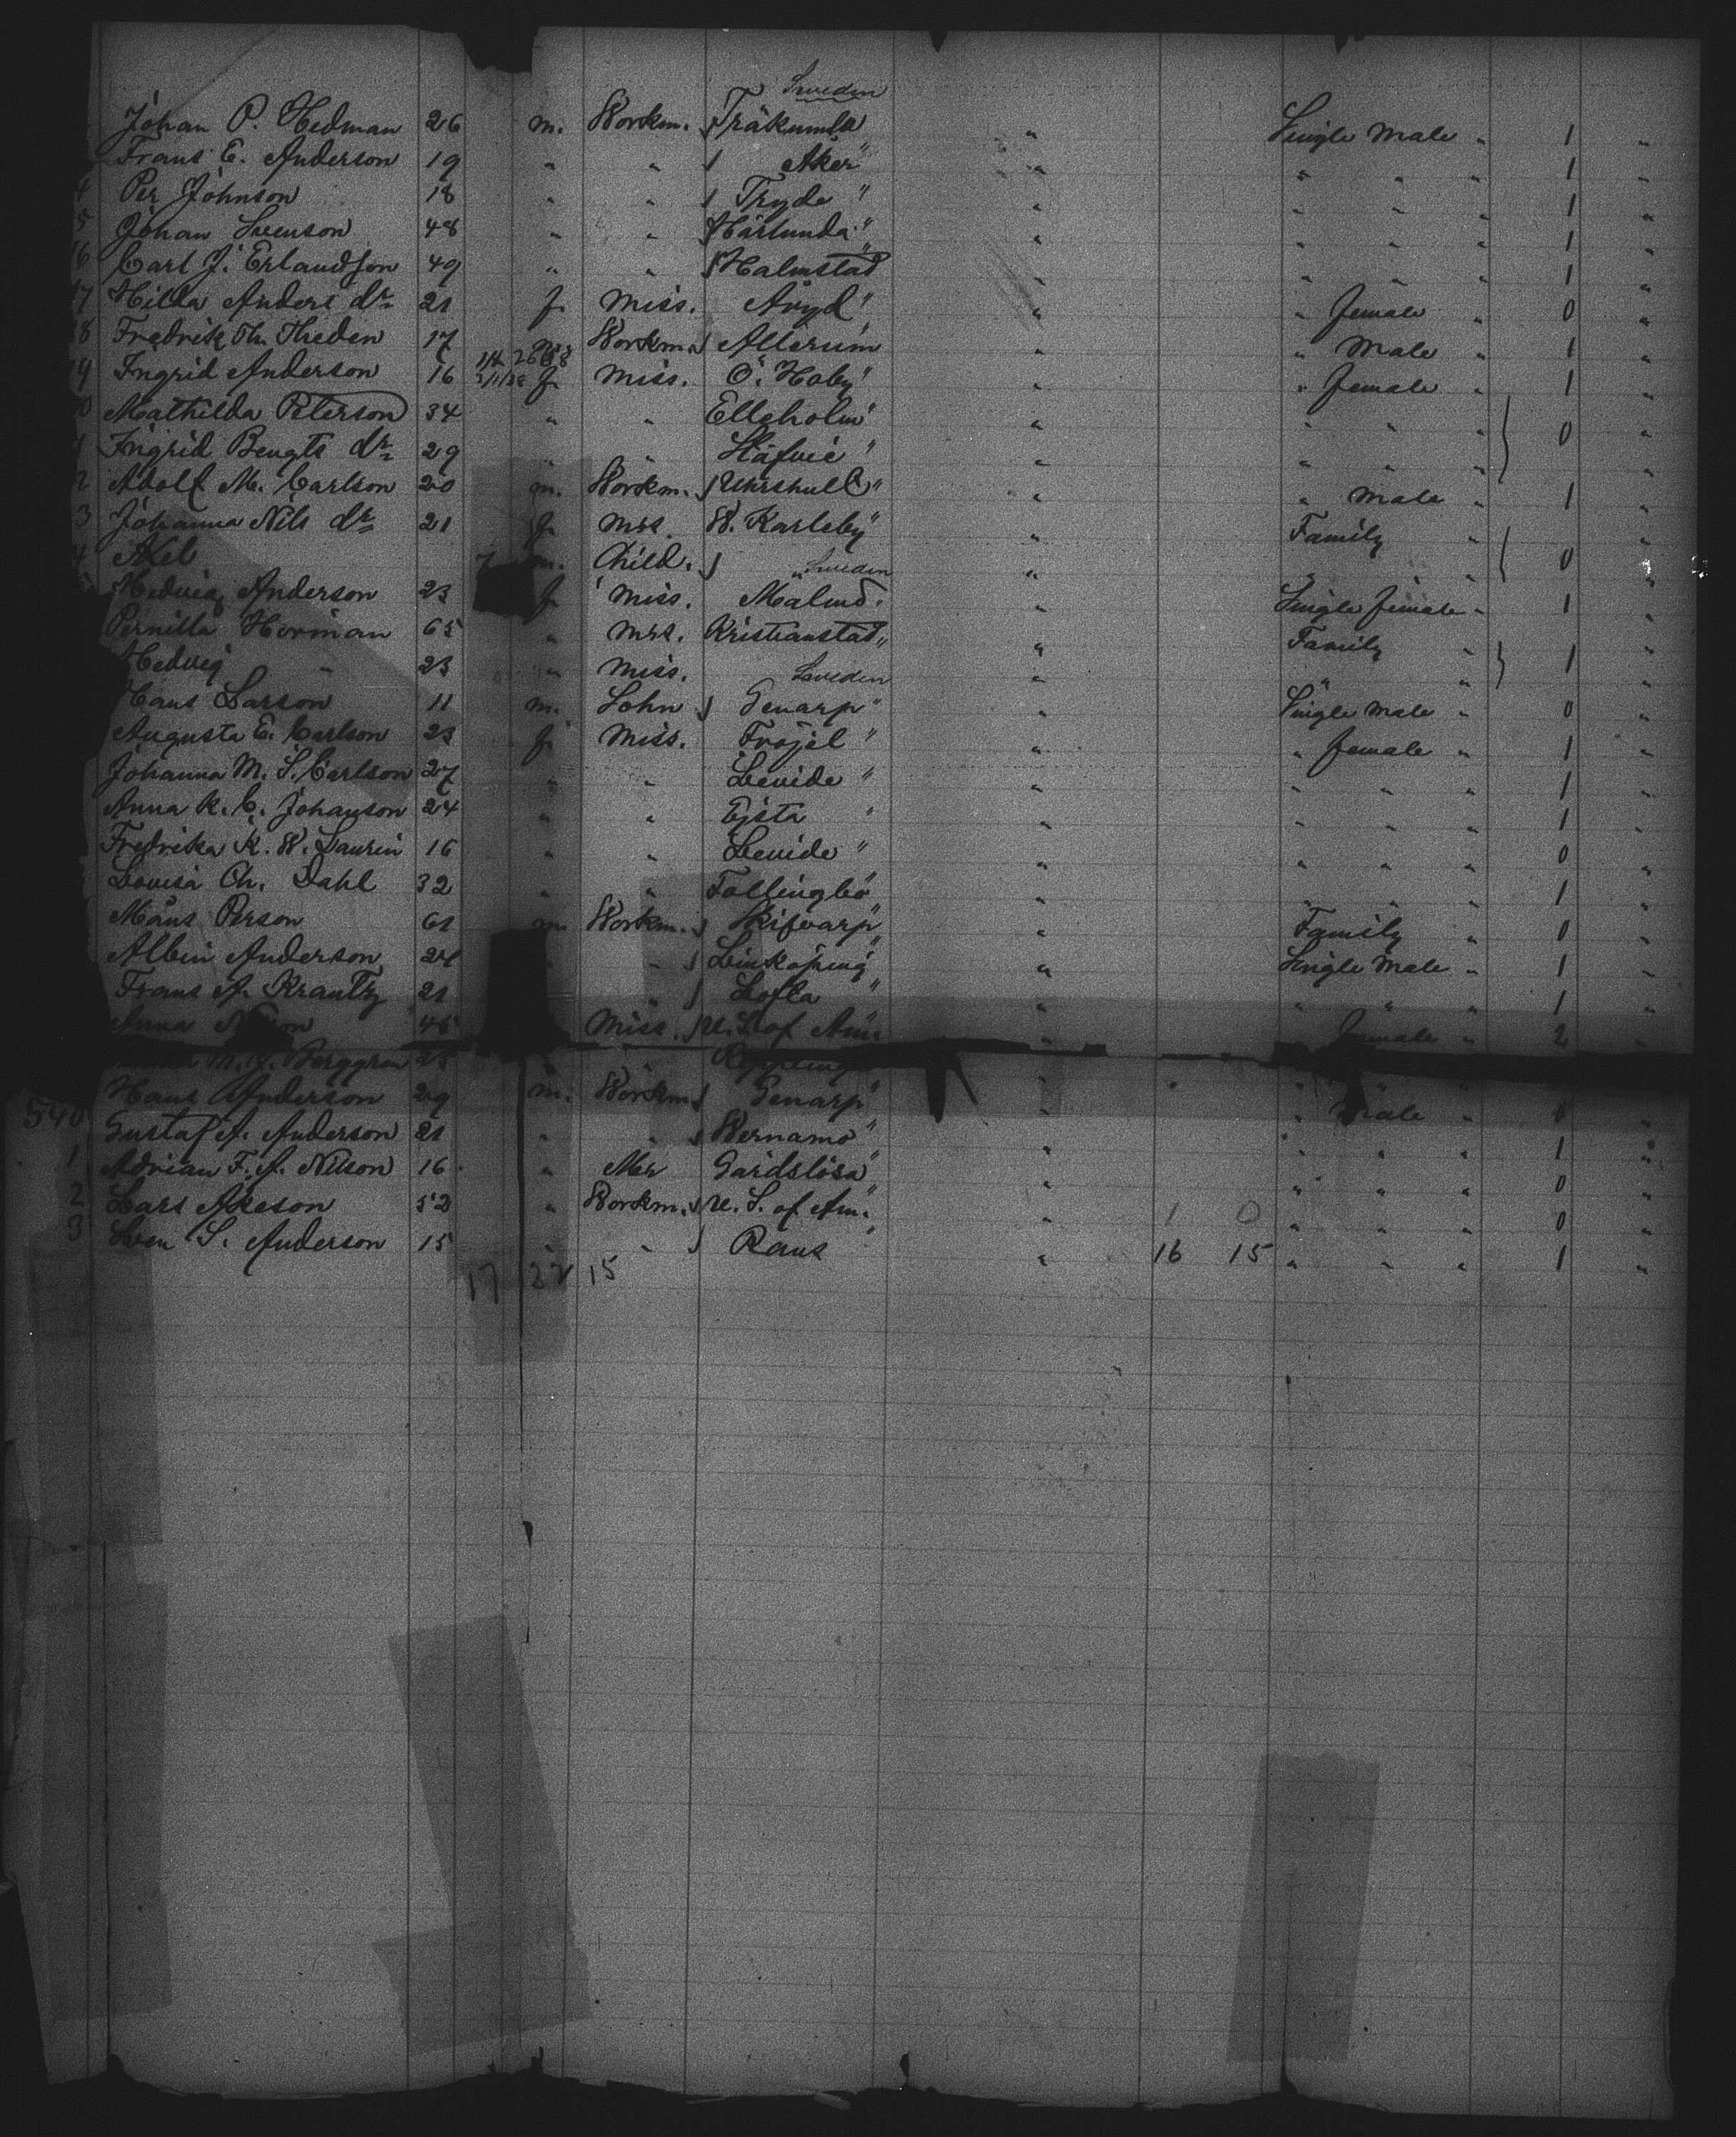 Sweden
Johan P. Hedman 26 m. Workm. Träkumla " Single Male " 1 "
Frans E. Anderson 19 " " Aker " " " " " 1 "
4 Per Johnson 18 " " Tryde " " " " " 1 "
5 Johan Svenson 48 " " Härlunda " " " " " 1 "
6 Carl J. Erlandson 49 " " Halmstad " " " " " 1 "
7 Hilda Anders dr 21 f. Miss. Aryd " " " female " 0 "
8 Fredrik Th. Theden 17 m. Workm. Allerum " " Male " 1 "
9 Ingrid Anderson 16 f. Miss. Ö. Hoby " " " female " 1 "
0 Mathilda Peterson 34 " " Elleholm " " " " "
1 Ingrid Bengts dr 29 " " " " " " " } 0 "
2 Adolf M. Carlson 20 m. Workm. " " " Male " 1 "
3 Johanna Nils dr 21 f. Mrs. W. Karleby " " Family " "
4 Axel 7 m. Child. " Sweden " " " } 0 "
Hedvig Anderson 23 f Miss. Malmö. " Single female " 1 "
Pernilla Horman 65 " Mrs. Kristianstad " " Family " "
Hedvig " 23 " Miss. Sweden " " " } 1 "
Hans Larson 11 m. Sohn Genarp " " Single Male " 0 "
Augusta E. Carlson 23 f. Miss. Fröjel " " " female " 1 "
Johanna M. S. Carlson 27 " " Levide " " " " " 1 "
Anna K. C. Johanson 24 " " Ejsta " " " " " 1 "
Fredrika K. W. Laurin 16 " " Levide " " " " " 0 "
Lovisa Ch. Dahl 32 " " Follingbo " " " " " 1 "
Måns Person 61 m. Workm. Skifvarp " " Family " 0 "
Albin Anderson 24 " " Linköping " " Single Male " 1 "
Frans A. Krantz 21 " Lofta " " " " 1 "
Anna 45 Miss. U. S. of Am. " female " 2 "
M. Berggren 25
Hans Anderson 29 m. Workm. Genarp " " " Male " 0 "
540 Gustaf A. Anderson 21 " " Wernamo " " " " " 1 "
1 Adrian F. A. Nilson 16 " Mr Gärdslösa " " " " " 0 "
2 Lars Akeson 52 " Workm. U. S. of Am. " 1 0 " " " 0 "
3 Sven S. Anderson 15 " " Raus " " 16 15 " " " 1 "
17 22 15